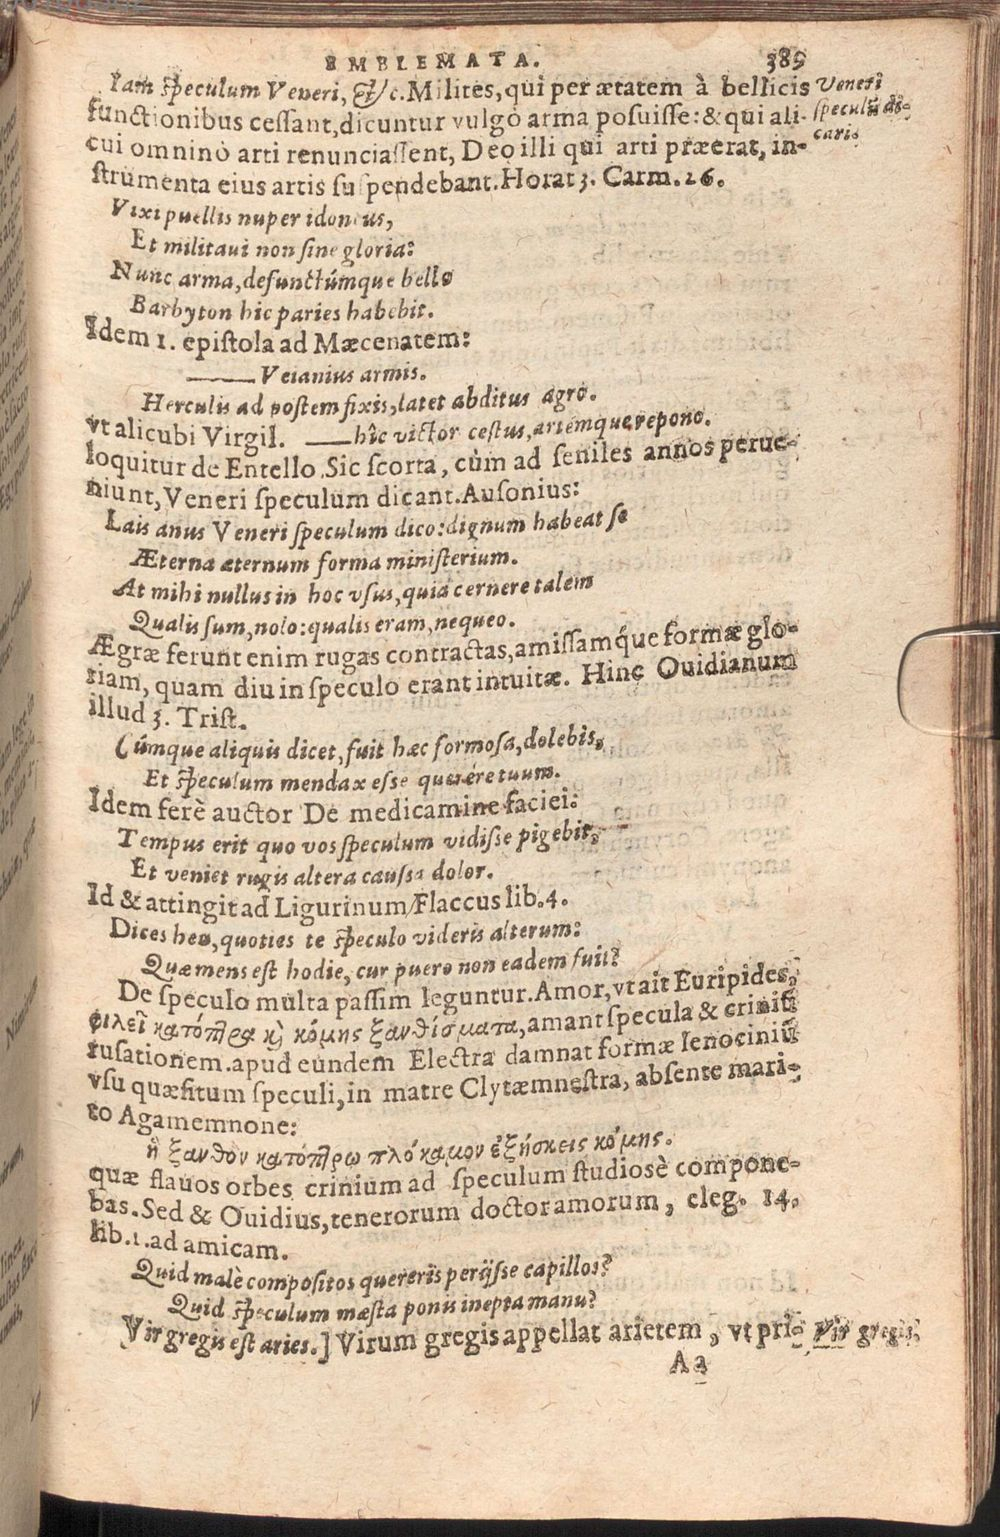 EMBLEMATA. 389
Iam speculum Veneri, &c. Milites, qui per ætatem à bellicis
functionibus cessant, dicuntur vulgò arma posuisse: & qui ali-
cui omninò arti renunciassent, Deo illi qui arti præerat, in-
strumenta eius artis suspendebant. Horat 3. Carm. 26.
Veneri
speculũ de-
cari.
Vixi puellis nuper idoneus,
Et militaui non sine gloria:
Nunc arma, defunctúmque bello
Barbyton hic paries habebit.
Idem 1. epistola ad Mæcenatem:
—— Veianius armis.
Herculis ad postem fixis, latet abditus agro.
vt alicubi Virgil. —— hîc victor cestus, artémque repono.
loquitur de Entello. Sic scorta, cùm ad seniles annos perue-
niunt, Veneri speculum dicant. Ausonius:
Lais anus Veneri speculum dico: dignum habeat se
Æterna æternum forma ministerium.
At mihi nullus in hoc vsus, quia cernere talem
Qualis sum, nolo: qualis eram, nequeo.
Ægræ ferunt enim rugas contractas, amissamq́ue formæ glo-
riam, quam diu in speculo erant intuitæ. Hinc Ouidianum
illud 3. Trist.
Cúmque aliquis dicet, fuit hæc formosa, dolebis,
Et speculum mendax esse querére tuum.
Idem ferè auctor De medicamine faciei:
Tempus erit quo vos speculum vidisse pigebit,
Et veniet rugis altera caussa dolor.
Id & attingit ad Ligurinum Flaccus lib. 4.
Dices heu, quoties te speculo videris alterum:
Quæ mens est hodie, cur puero non eadem fuit?
De speculo multa passim leguntur. Amor, vt ait Euripides,
φιλεῖ κατόπτρα κὶ κόμης ξανθίσματα, amant specula & criniũ
rusationem. apud eundem Electra damnat formæ lenociniũ
vsu quæsitum speculi, in matre Clytæmnestra, absente mari-
to Agamemnone:
ἢ ξανθὸν κατόπτρῳ πλόκαμον ἐξήσκεις κόμης.
quæ flauos orbes crinium ad speculum studiosè compone-
bas. Sed & Ouidius, tenerorum doctor amorum, eleg. 14.
lib. 1. ad amicam.
Quid malè compositos quereris perijsse capillos?
Quid speculum mæsta ponis inepta manu?
Vir gregis est aries.] Virum gregis appellat arietem, vt pri-
Vir gregis.
A a